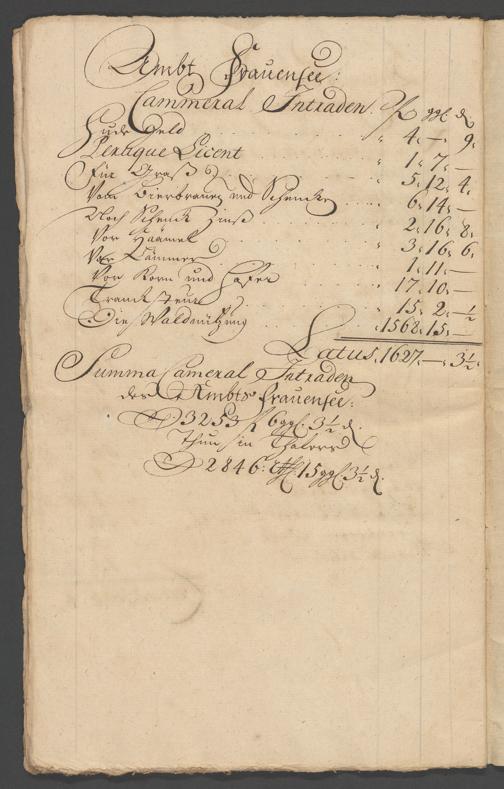 Ambt Frauensee:
Cammeral Intraden. fl ggl. d
Hude Geld 4. — 9.
Perlique Licent 1. 7. —
Für Graß 5. 12. 4.
Vom Bierbrauen und Schencken 6. 14. —
Noch Schenck Zinß 2. 16. 8.
Vor Hämel 3. 16. 6.
Vor Lämmer 1. 11. —
Von Korn und Hafer 17. 10. —
Tranck Steur 15. 2. ½
Die Waldnützung 1568. 15. —
Latus. 1627. — 3½.
Summa Cameral Intraden
des Ambts Frauensee:
3253 fl 6 ggl. 3½ d.
Thun in Thalern
2846. 15 ggl. 3½ d.